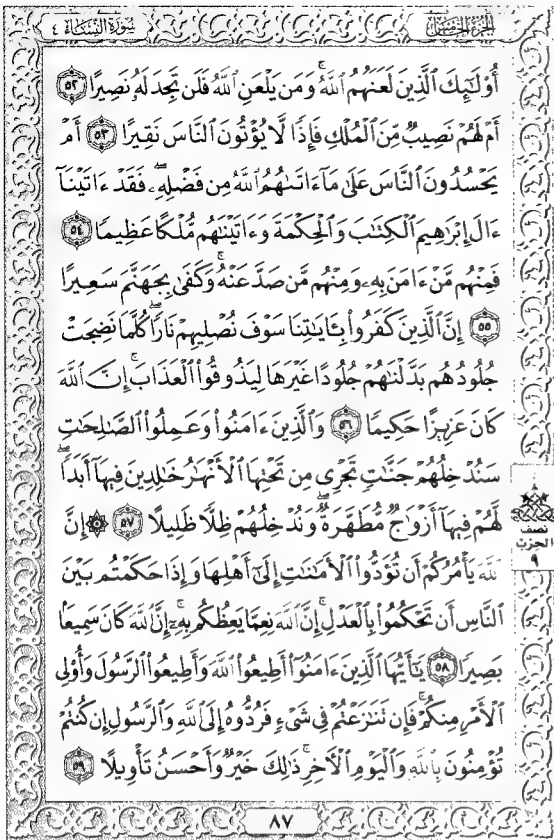 سورة النساء ٤
الجزء الخامس
أُوْلَٰٓئِكَ ٱلَّذِينَ لَعَنَهُمُ ٱللَّهُۖ وَمَن يَلْعَنِ ٱللَّهُ فَلَن تَجِدَ لَهُۥ نَصِيرًا ٥٢
أَمْ لَهُمْ نَصِيبٌ مِّنَ ٱلْمُلْكِ فَإِذًا لَّا يُؤْتُونَ ٱلنَّاسَ نَقِيرًا ٥٣ أَمْ
يَحْسُدُونَ ٱلنَّاسَ عَلَىٰ مَآ ءَاتَىٰهُمُ ٱللَّهُ مِن فَضْلِهِۦۖ فَقَدْ ءَاتَيْنَآ
ءَالَ إِبْرَٰهِيمَ ٱلْكِتَٰبَ وَٱلْحِكْمَةَ وَءَاتَيْنَٰهُم مُّلْكًا عَظِيمًا ٥٤
فَمِنْهُم مَّنْ ءَامَنَ بِهِۦ وَمِنْهُم مَّن صَدَّ عَنْهُۚ وَكَفَىٰ بِجَهَنَّمَ سَعِيرًا
٥٥ إِنَّ ٱلَّذِينَ كَفَرُوا۟ بِـَٔايَٰتِنَا سَوْفَ نُصْلِيهِمْ نَارًا كُلَّمَا نَضِجَتْ
جُلُودُهُم بَدَّلْنَٰهُمْ جُلُودًا غَيْرَهَا لِيَذُوقُوا۟ ٱلْعَذَابَۗ إِنَّ ٱللَّهَ
كَانَ عَزِيزًا حَكِيمًا ٥٦ وَٱلَّذِينَ ءَامَنُوا۟ وَعَمِلُوا۟ ٱلصَّٰلِحَٰتِ
سَنُدْخِلُهُمْ جَنَّٰتٍ تَجْرِى مِن تَحْتِهَا ٱلْأَنْهَٰرُ خَٰلِدِينَ فِيهَآ أَبَدًاۖ
لَّهُمْ فِيهَآ أَزْوَٰجٌ مُّطَهَّرَةٌۖ وَنُدْخِلُهُمْ ظِلًّا ظَلِيلًا ٥٧ ۞ إِنَّ
ٱللَّهَ يَأْمُرُكُمْ أَن تُؤَدُّوا۟ ٱلْأَمَٰنَٰتِ إِلَىٰٓ أَهْلِهَا وَإِذَا حَكَمْتُم بَيْنَ
ٱلنَّاسِ أَن تَحْكُمُوا۟ بِٱلْعَدْلِۚ إِنَّ ٱللَّهَ نِعِمَّا يَعِظُكُم بِهِۦٓۗ إِنَّ ٱللَّهَ كَانَ سَمِيعًۢا
بَصِيرًا ٥٨ يَٰٓأَيُّهَا ٱلَّذِينَ ءَامَنُوٓا۟ أَطِيعُوا۟ ٱللَّهَ وَأَطِيعُوا۟ ٱلرَّسُولَ وَأُو۟لِى
ٱلْأَمْرِ مِنكُمْۖ فَإِن تَنَٰزَعْتُمْ فِى شَىْءٍ فَرُدُّوهُ إِلَى ٱللَّهِ وَٱلرَّسُولِ إِن كُنتُمْ
تُؤْمِنُونَ بِٱللَّهِ وَٱلْيَوْمِ ٱلْءَاخِرِۚ ذَٰلِكَ خَيْرٌ وَأَحْسَنُ تَأْوِيلًا ٥٩
نصف
الحزب
٩
٨٧